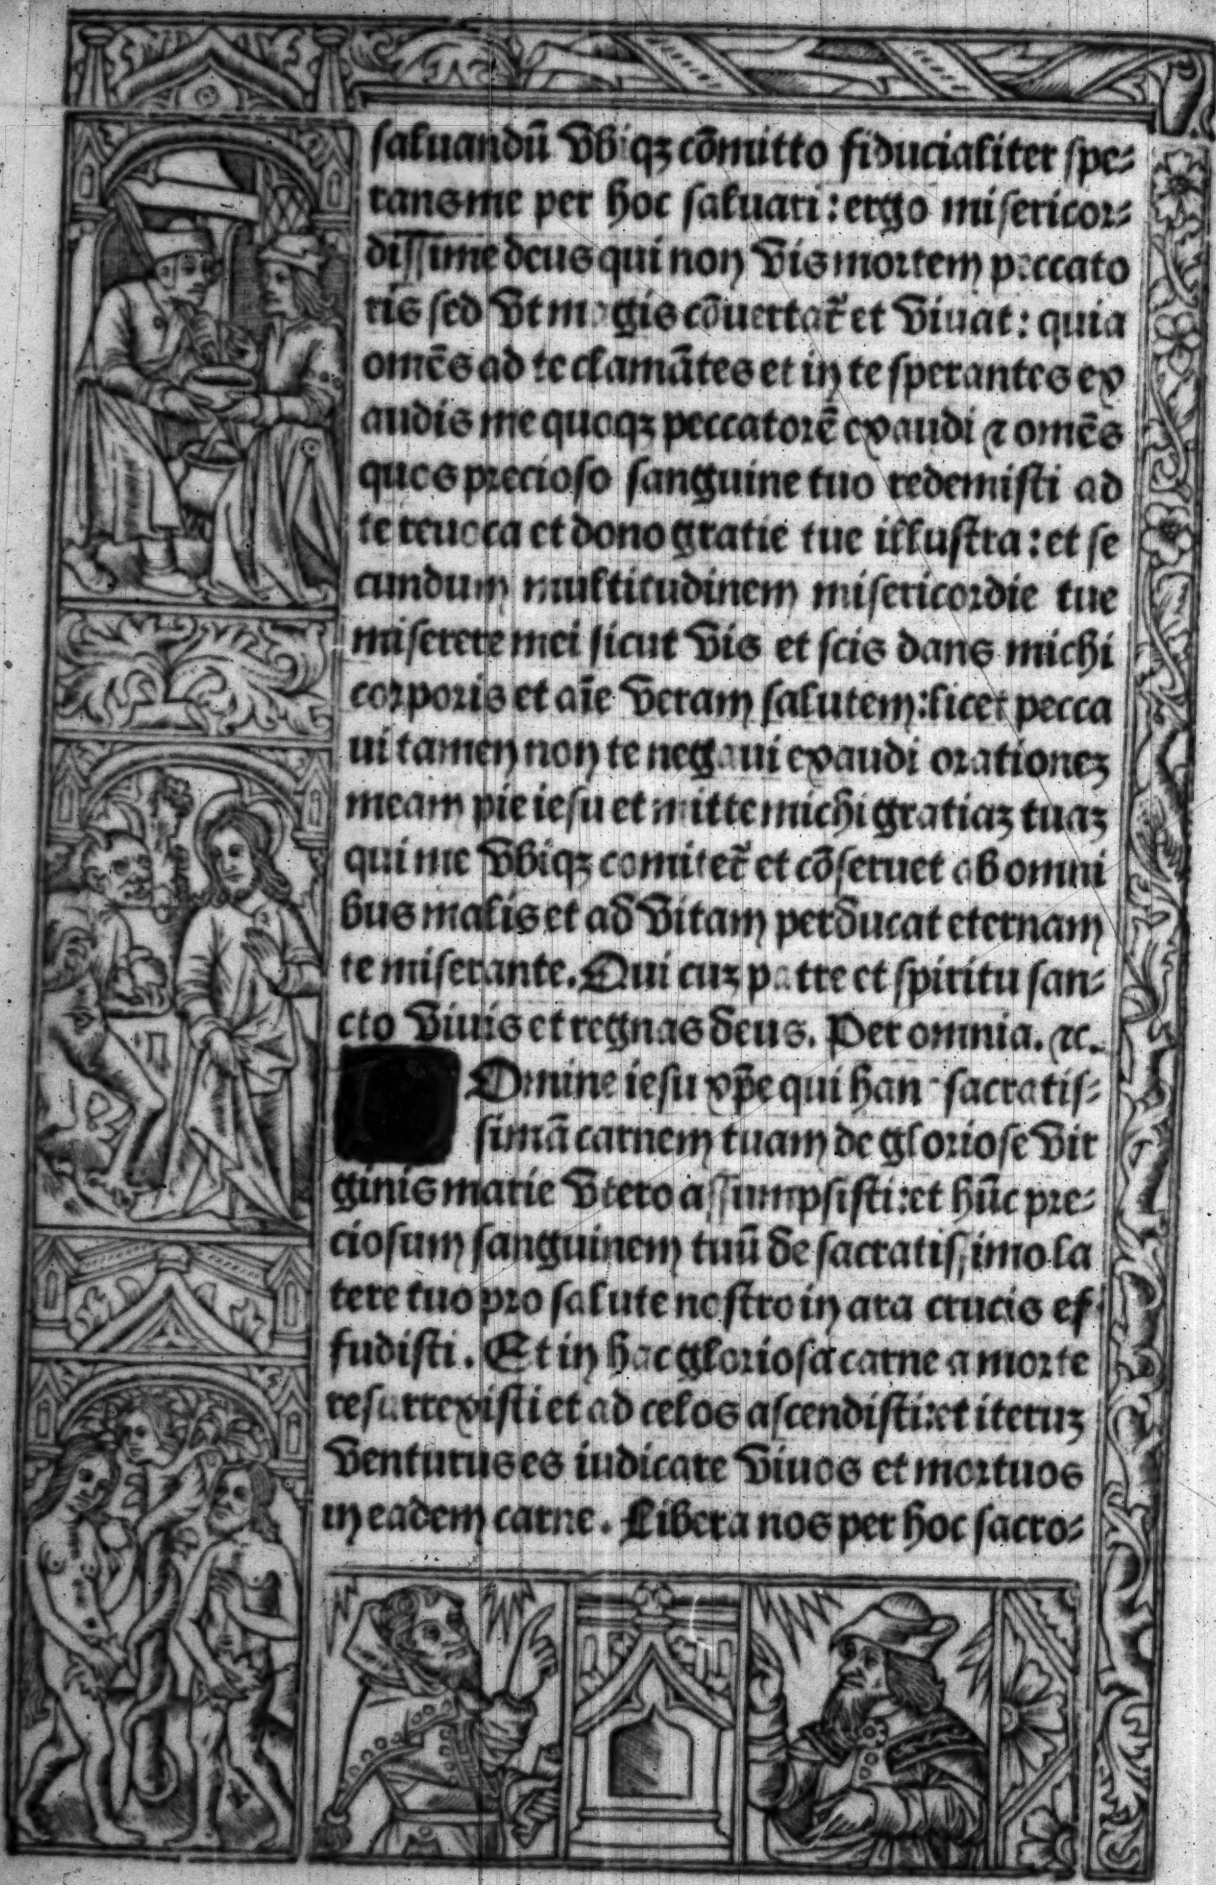 saluandū vbiqꝫ cōmitto fiducialiter spe-
rans me per hoc saluari: ergo misericor-
dissime deus qui non vis mortem peccato
ris sed vt magis cōuertat̄ et viuat: quia
omēs ad te clamātes et in te sperantes ex
audis me quoqꝫ peccatorē exaudi ⁊ omēs
quos precioso sanguine tuo redemisti ad
te reuoca et dono gratie tue illustra: et se
cundum multitudinem misericordie tue
miserere mei sicut vis et scis dans michi
corporis et aīe veram salutem: licet pecca
ui tamen non te negaui exaudi orationeꝫ
meam pie iesu et mitte michi gratiaꝫ tuaꝫ
qui me vbiqꝫ comitet̄ et cōseruet ab omni
bus malis et ad vitam perducat eternam
te miserante. Qui cuꝫ patre et spiritu san-
cto viuis et regnas deus. Per omnia. ⁊c.
Omine iesu xp̄e qui hanc sacratis-
simā carnem tuam de gloriose vir
ginis marie vtero assumpsisti: et hūc pre-
ciosum sanguinem tuū de sacratissimo la
tere tuo pro salute nostro in ara crucis ef
fudisti. Et in hac gloriosa carne a morte
resurrexisti et ad celos ascendisti: et iteruꝫ
venturus es iudicare viuos et mortuos
in eadem carne. Libera nos per hoc sacro-